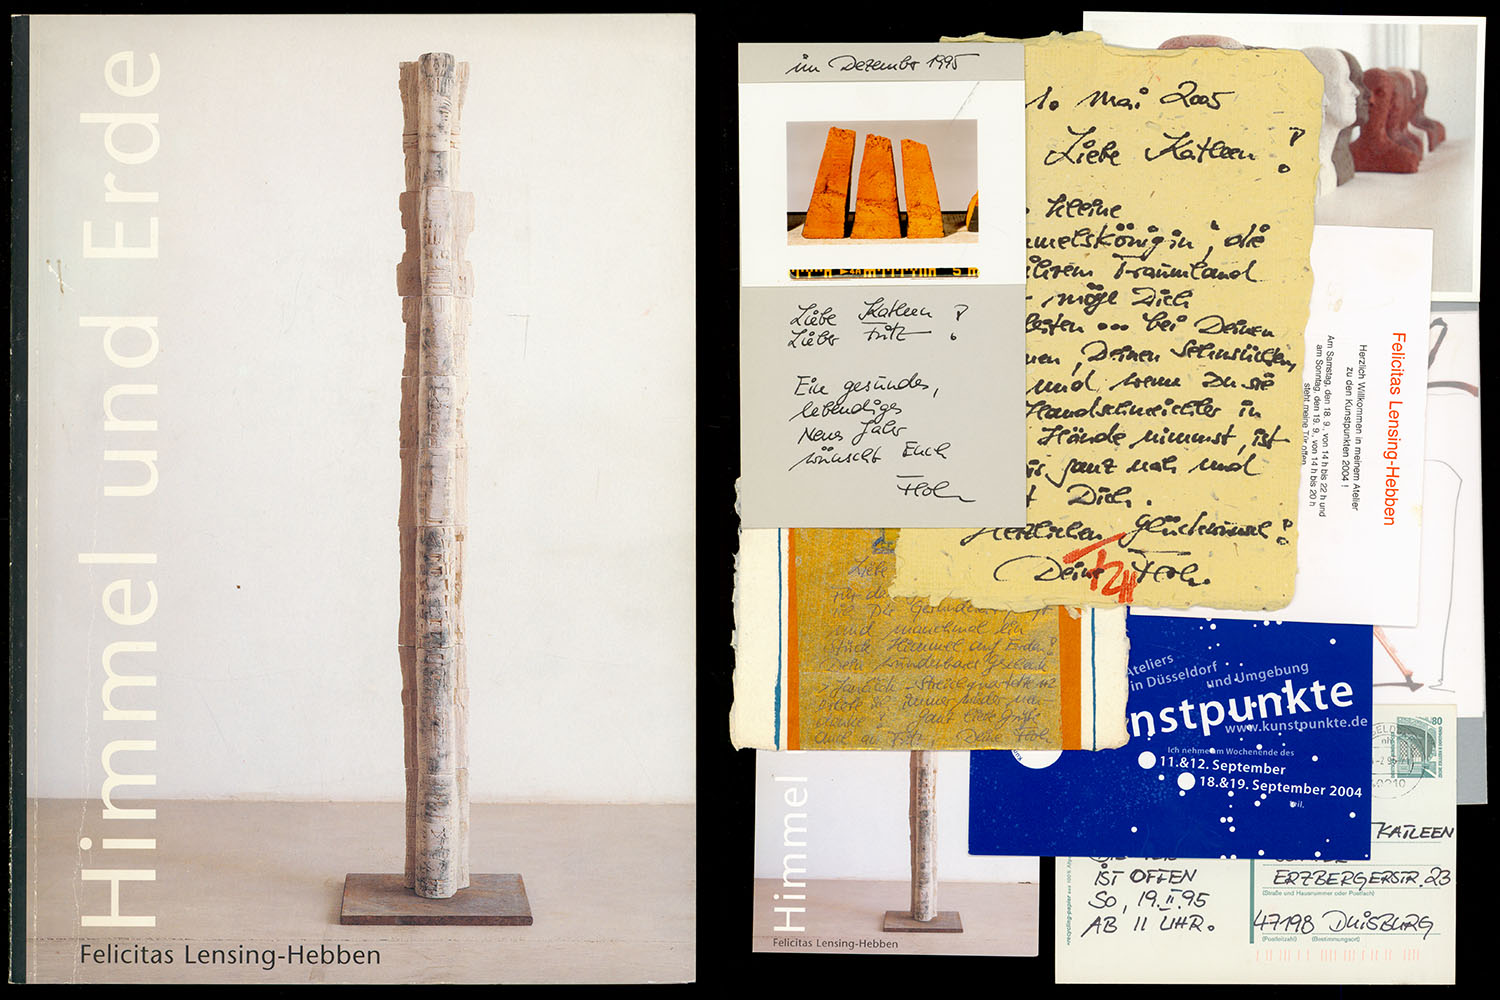 Himmel und Erde
Felicitas Lensing-Hebben
im Dezember 1995
Liebe Katleen !
Lieber Fritz !
Ein gesundes,
lebendiges
Neues Jahr
wünscht Euch
Floh
10. Mai 2005
Liebe Katleen !
kleine
mmelskönigin, die
ihrem Traumland
möge Dich
leiten ... bei Deinen
nen, Deinen Sehnsüchten,
und wenn Du sie
Handschmeichler in
Hände nimmst, ist
ganz nah und
Dich.
Herzlichen Glückwunsch !
Deine Floh
Liebe
für de
sie Die Gesundheit
und manchmal ein
Stück Himmel auf Erden !
Dein wunderbares Geschenk
> Janáček - Streichquartette 1+2
immer wieder
danke ! Ganz liebe Grüße
auch an Fritz, Deine Floh
Felicitas Lensing-Hebben
Herzlich Willkommen in meinem Atelier
zu den Kunstpunkten 2004 !
Am Samstag, den 18. 9., von 14 h bis 22 h und
am Sonntag, den 19. 9., von 14 h bis 20 h
steht meine Tür offen
Ateliers
in Düsseldorf
und Umgebung
nstpunkte
www.kunstpunkte.de
Ich nehme am Wochenende des
11.&12. September
18.&19. September 2004
teil.
Himmel
Felicitas Lensing-Hebben
80
IST OFFEN
SO, 19.II.95
AB 11 UHR.
KATLEEN
ERZBERGERSTR. 23
(Straße und Hausnummer oder Postfach)
47198 DUISBURG
(Postleitzahl) (Bestimmungsort)